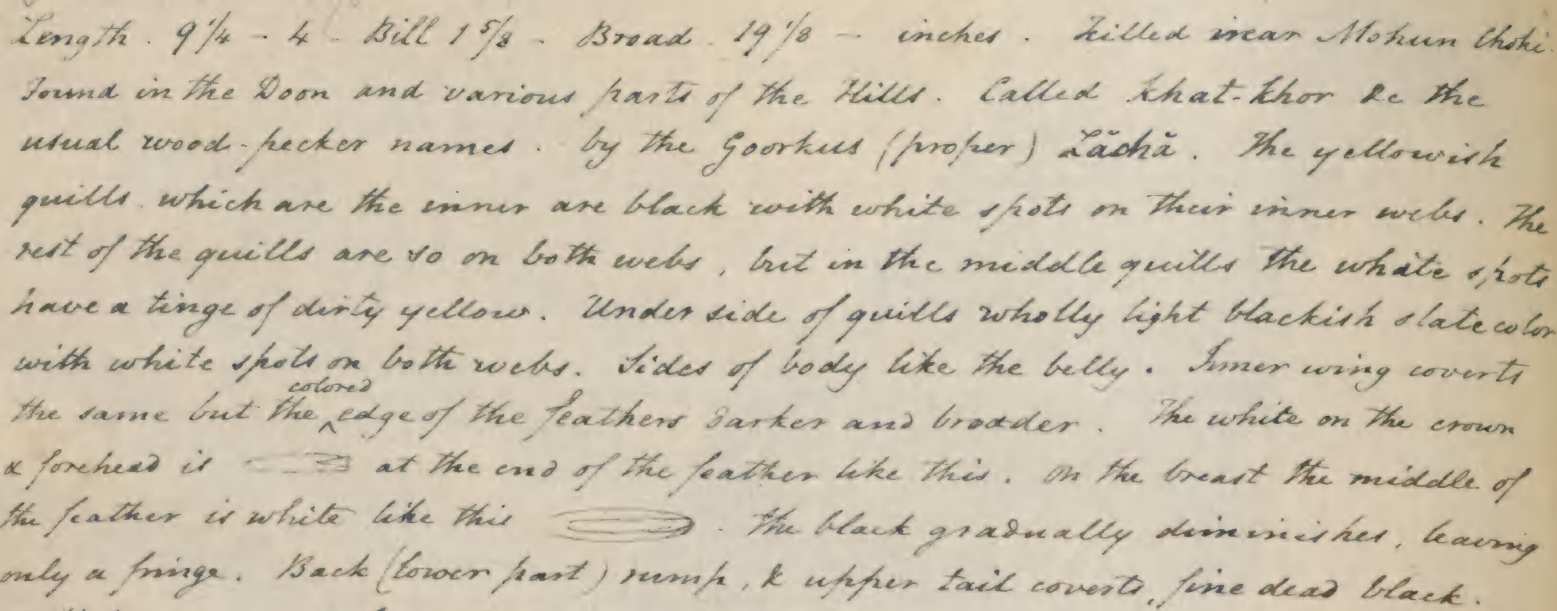 Length. 9 1/4 - 4 - Bill 1 5/8 - Broad. 19 1/8 - inches. Killed near Mohun Choki.
Found in the Doon and various parts of the Hills. Called Khat-Khor &c the
usual wood-pecker names. by the Goorkus (proper) Lāchă. The yellowish
quills which are the inner are black with white spots on their inner webs. The
rest of the quills are so on both webs, but in the middle quills the white spots
have a tinge of dirty yellow. Under side of quills wholly light blackish slate color
with white spots on both webs. Sides of body like the belly. Inner wing coverts
the same but the colored edge of the feathers darker and broader. The white on the crown
& forehead is at the end of the feather like this. On the breast the middle of
the feather is white like this. The black gradually diminishes, leaving
only a fringe. Back (lower part) rump, & upper tail coverts, fine dead black.